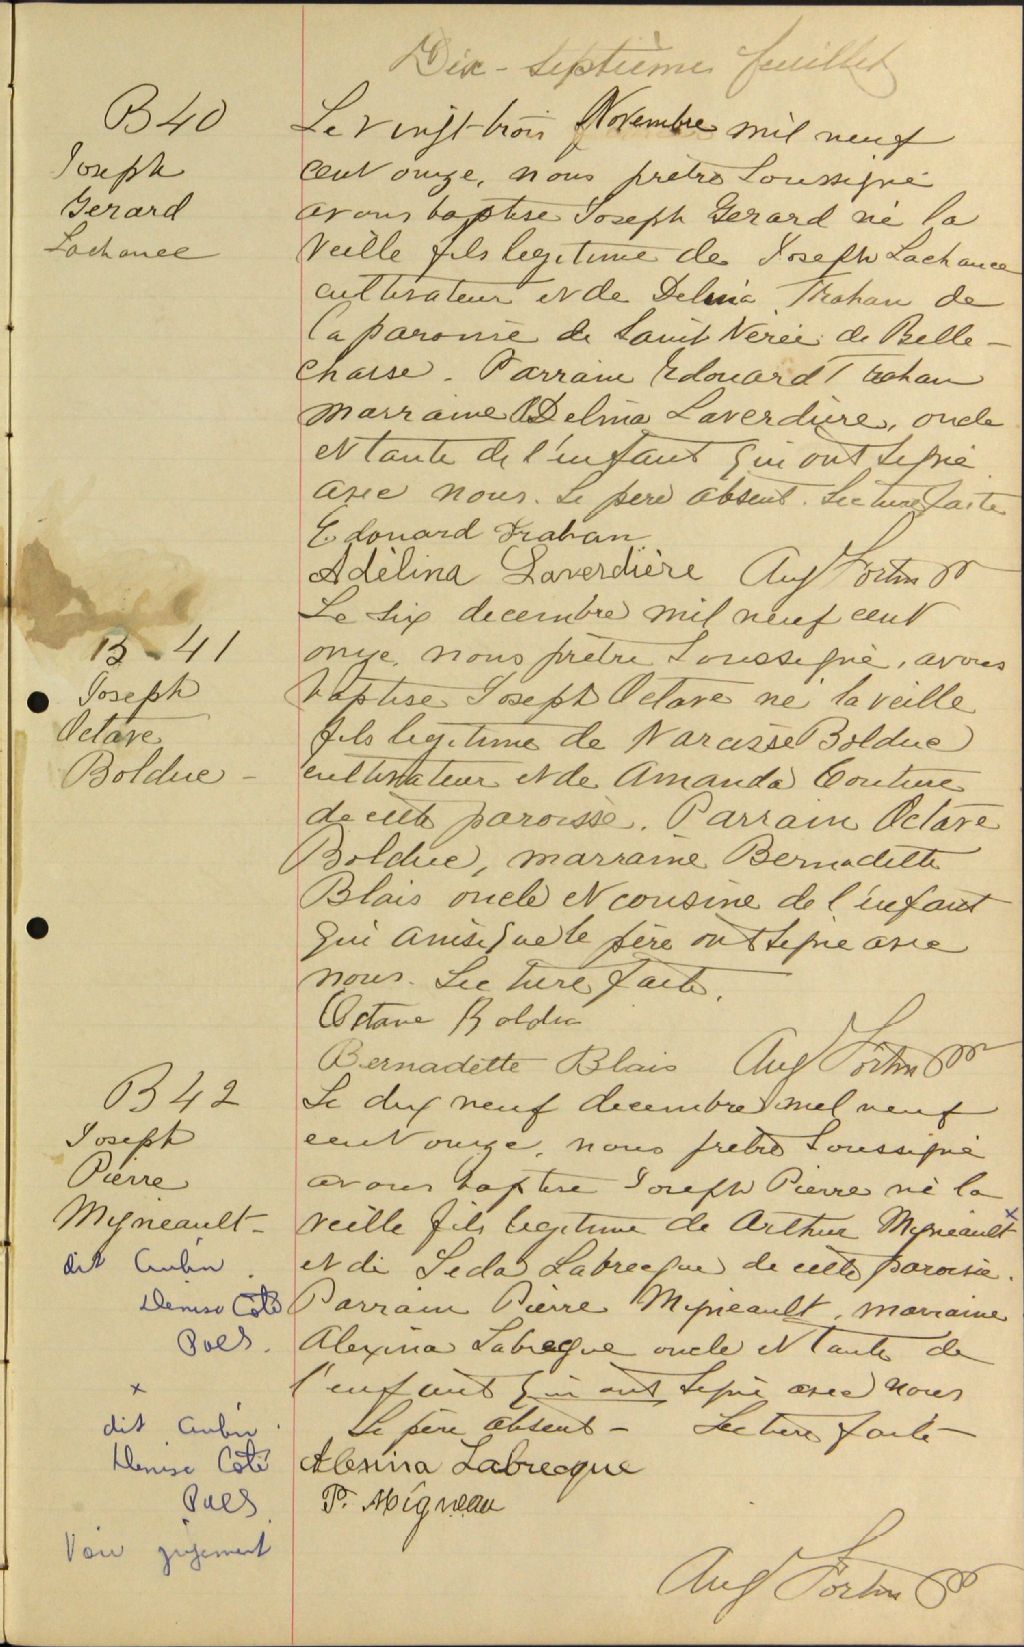 Dix-septième feuillet
B 40
Joseph
Gerard
Lachance
Le vingt-trois Novembre mil neuf
cent onze, nous prêtre soussigné
avons baptisé Joseph Gerard né la
veille fils legitime de Joseph Lachance
cultivateur et de Delvina Trahan de
la paroisse de Saint Nérée de Belle-
chasse. Parrain Edouard Trahan
marraine Delina Laverdière, oncle
et tante de l'enfant qui ont signé
avec nous. Le père absent. Lecture faite
Edouard Trahan
Adèlina Laverdière Aug Fortin ptr
B 41
Joseph
Octave
Bolduc -
Le six decembre mil neuf cent
onze, nous prêtre soussigné, avons
baptisé Joseph Octave né la veille
fils legitime de Narcisse Bolduc
cultivateur et de Amanda Couture
de cette paroisse. Parrain Octave
Bolduc, marraine Bernadette
Blais oncle et cousine de l'enfant
qui ainsi que le père ont signé avec
nous. Lecture faite.
Octave Bolduc
Bernadette Blais Aug Fortin ptr
B 42
Joseph
Pierre
Migneault -
dit Aubin
Denise Côté
x
dit Aubin
Denise Côté
Voir jugement
Le dix neuf decembre mil neuf
cent onze, nous prêtre soussigné
avons baptisé Joseph Pierre né la
veille fils legitime de Arthur Migneault x
et de Leda Labrecque de cette paroisse.
Parrain Pierre Migneault, marraine
Alexina Labreque oncle et tante de
l'enfant qui ont signé avec nous
Le père absent - Lecture faite -
Alexina Labrecque
P. Migneau
Aug Fortin ptr